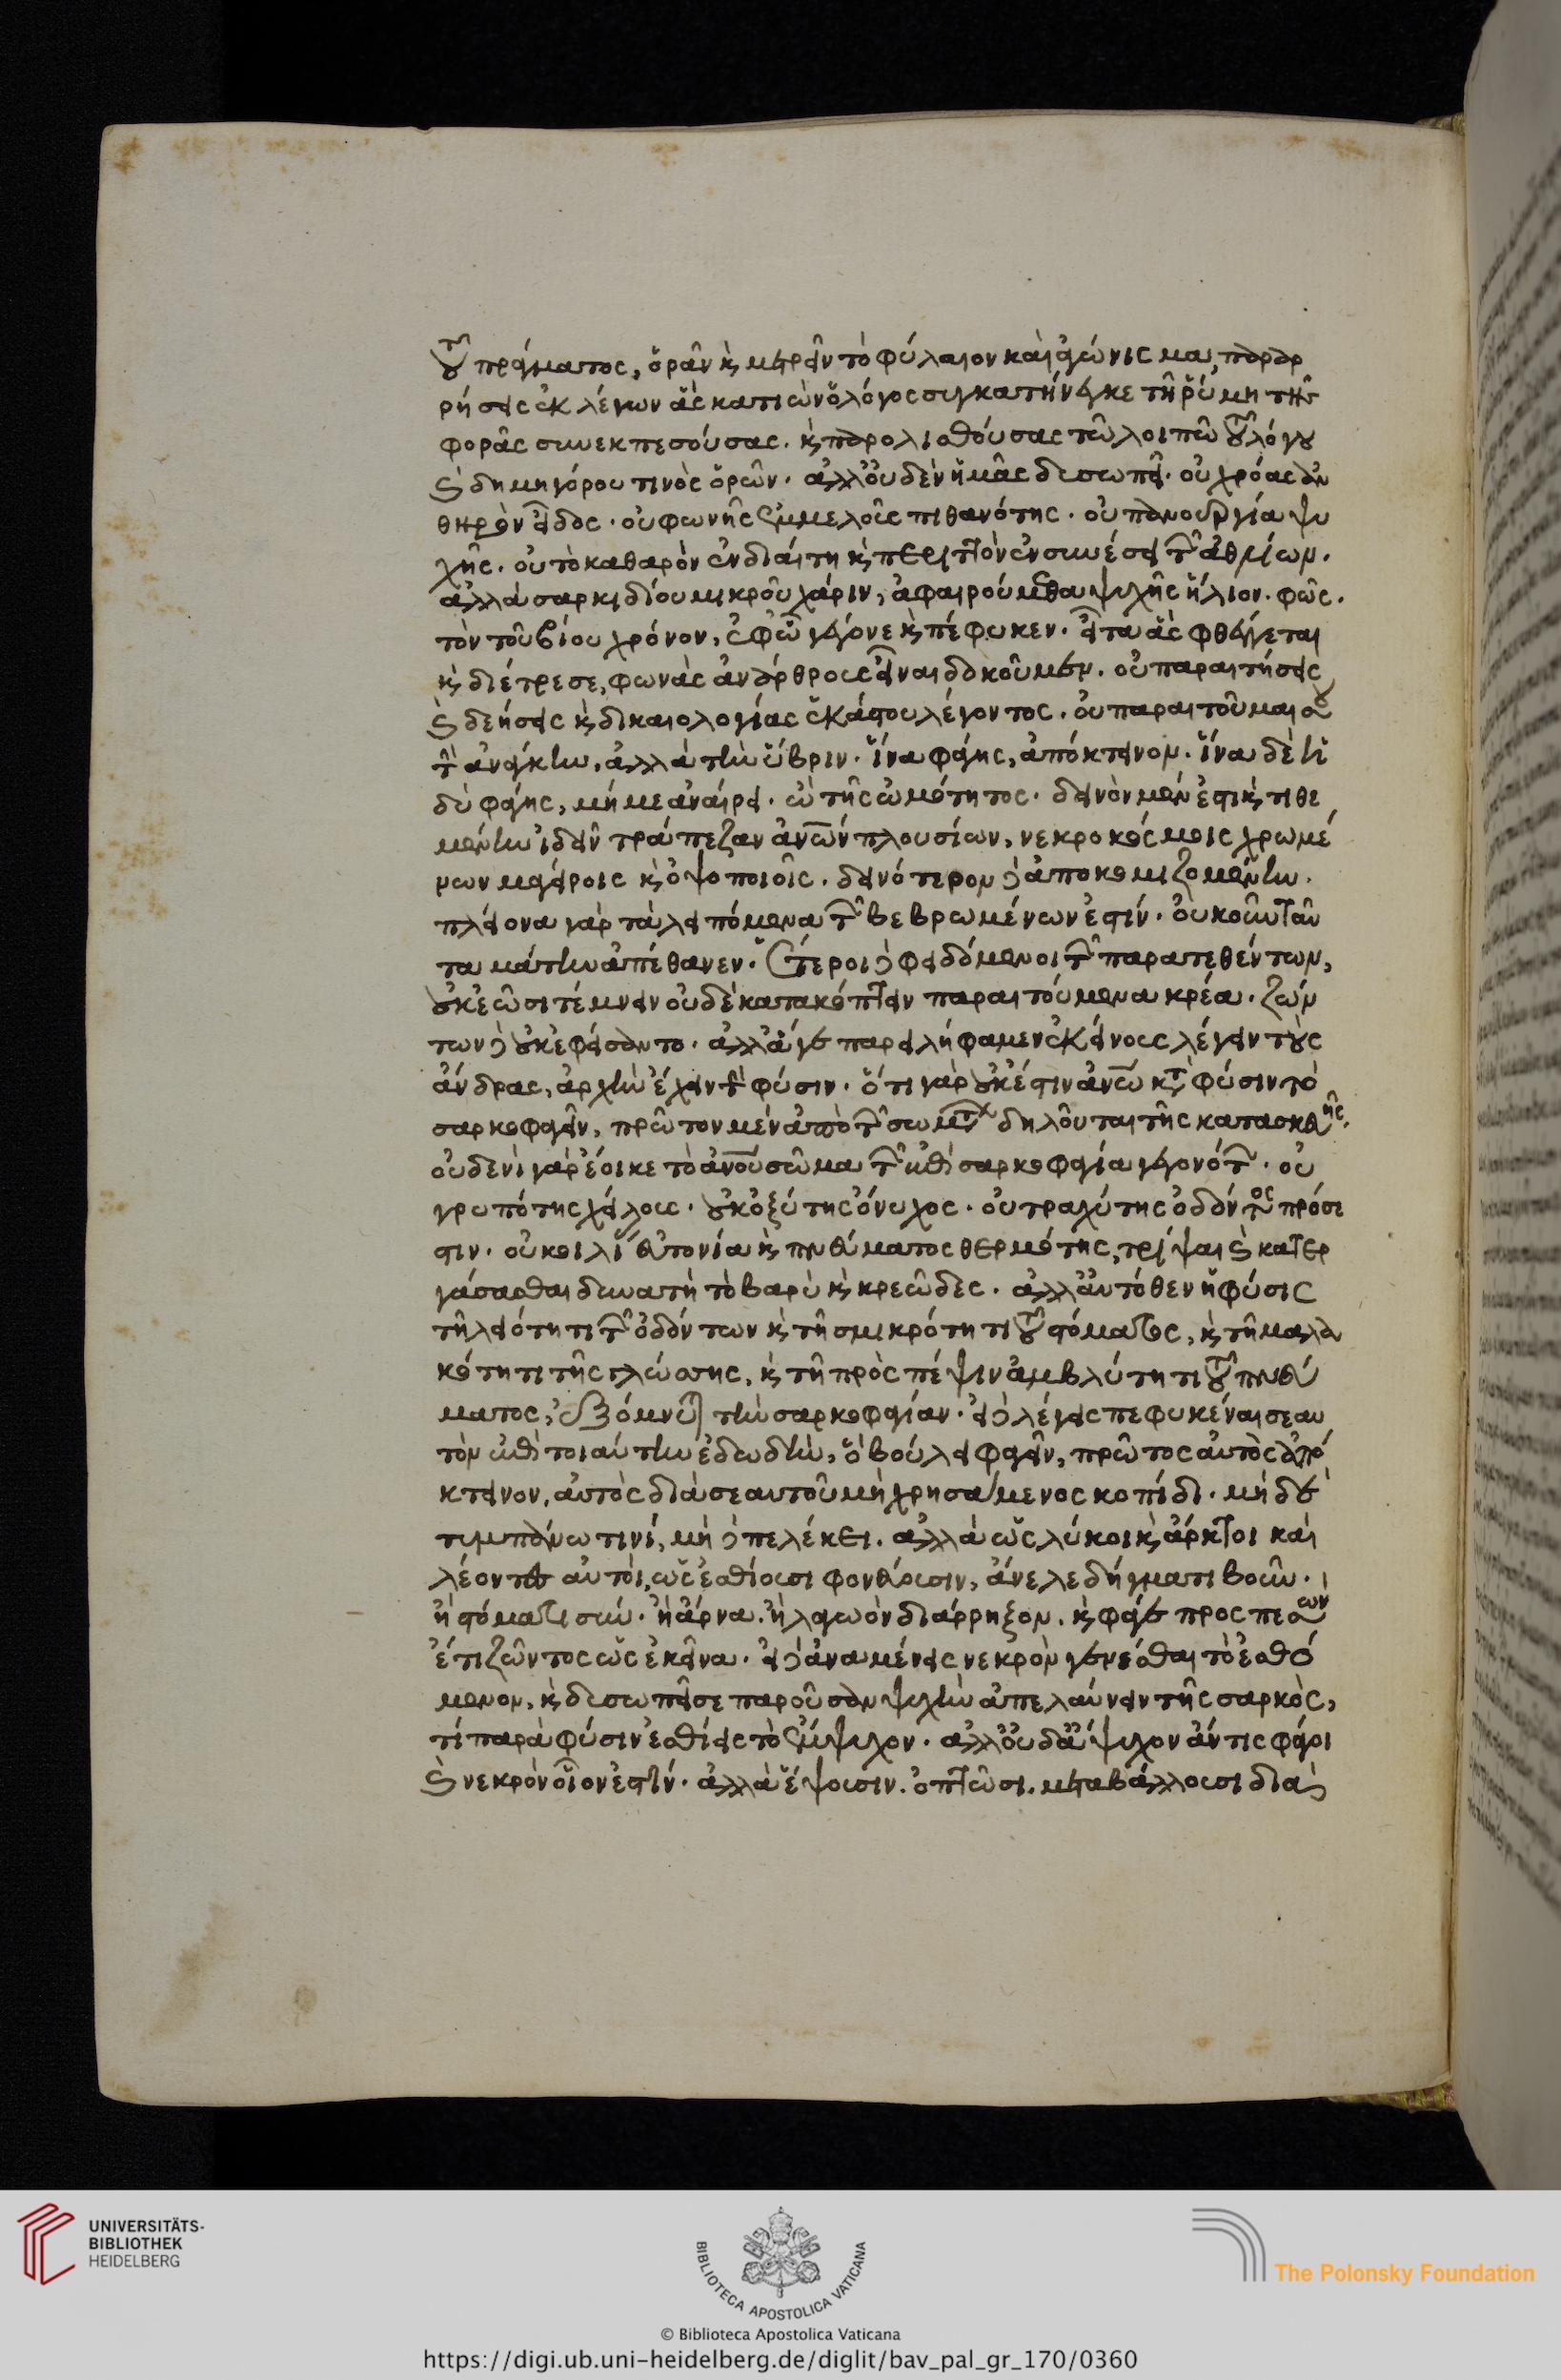 τοῦ πράγματος, ὁρᾶν καὶ μετρεῖν τὸ φύλαιον καὶ ἀγώνισμα, παραρ
ρήσεις ἐκλέγων ἃς κατιὼν ὁ λόγος συγκατήνεγκε τῇ ῥύμῃ τῆς
φορᾶς συνεκπεσούσας. καὶ παρολισθούσας τῶ λοιπῶ τοῦ λόγου
ἢ δημηγόρου τινὸς ὁρῶν. ἀλλ' οὐδὲν ἡμᾶς δυσωπεῖ. οὐ χρόας ἀν
θηρὸν εἶδος. οὐ φωνῆς ἐμμελοῦς πιθανότης. οὐ πανουργία ψυ
χῆς. οὐ τὸ καθαρὸν ἐν διαίτη καὶ περιττὸν ἐν συνέσει τῶν ἀθλίων.
ἀλλὰ σαρκιδίου μικροῦ χάριν, ἀφαιρούμεθα ψυχῆς ἥλιον. φῶς.
τὸν τοῦ βίου χρόνον, ἐφ' ᾧ γέγονε καὶ πέφυκεν. εἶτα ἃς φθέγγεται
καὶ διέτρεσε, φωνὰς ἀνάρθρους εἶναι δοκοῦμεν. οὐ παραιτήσεις
ἢ δεήσεις καὶ δικαιολογίας ἑκάστου λέγοντος. οὐ παραιτοῦμαι σου
τὴν ἀνάγκην, ἀλλὰ τὴν ὕβριν. ἵνα φάγης, ἀπόκτεινον. ἵνα δὲ ἡ
δὺ φάγης, μή με ἀναίρει. ὢ τῆς ὠμότητος. δεινὸν μέν ἐστι καὶ τιθε
μένην ἰδεῖν τράπεζαν ἀνων πλουσίων, νεκροκόσμοις χρωμέ
νων μαγείροις καὶ ὀψοποιοῖς. δεινότερον δὲ ἀποκομιζομένην.
πλείονα γὰρ τὰ λειπόμενα τῶν βεβρωμένων ἐστίν. οὐκοῦν ταῦ
τα μάτην ἀπέθανεν. ἕτεροι δὲ φειδόμενοι τῶν παρατεθέντων,
οὐκ ἐῶσι τέμνειν οὐδὲ κατακόπτειν παραιτούμενα κρέα. ζών
των δὲ οὐκ ἐφείσαντο. ἀλλ' ἄγε παρειλήφαμεν ἐκείνους λέγειν τοὺς
ἄνδρας, ἀρχὴν ἔχειν τὴν φύσιν. ὅτι γὰρ οὐκ ἔστιν ἀνω κατὰ φύσιν τὸ
σαρκοφαγεῖν, πρῶτον μὲν ἀπὸ τῶν σωμάτων δηλοῦται τῆς κατασκευῆς.
οὐδενὶ γὰρ ἔοικε τὸ ἀνου σῶμα τῶν ἐπὶ σαρκοφαγία γεγονότων. οὐ
γρυπότης χείλους. οὐκ ὀξύτης ὄνυχος. οὐ τραχύτης ὀδόντος πρόσε
στιν. οὐ κοιλίας εὐτονία καὶ πνεύματος θερμότης, τρέψαι ἢ κατερ
γάσασθαι δυνατὴ τὸ βαρὺ καὶ κρεῶδες. ἀλλ' αὐτόθεν ἡ φύσις
τῇ λειότητι τῶν ὀδόντων καὶ τῇ σμικρότητι τοῦ στόματος, καὶ τῇ μαλα
κότητι τῆς γλώσσης, καὶ τῇ πρὸς πέψιν ἀμβλύτητι τοῦ πνεύ
ματος, ἐξόμνυται τὴν σαρκοφαγίαν. εἰ δὲ λέγεις πεφυκέναι σεαυ
τὸν ἐπὶ τοιαύτην ἐδωδὴν, ὃ βούλει φαγεῖν, πρῶτος αὐτὸς ἀπό
κτεινον. αὐτὸς διὰ σεαυτοῦ μὴ χρησάμενος κοπίδι. μὴ δὲ
τυμπάνω τινί, μὴ δὲ πελέκει. ἀλλὰ ὡς λύκοι καὶ ἄρκτοι καὶ
λέοντες αὐτοὶ, ὡς ἐσθίουσι φονεύουσιν, ἄνελε δήγματι βοῦν.
ἢ στόματι σῦν. ἢ ἄρνα. ἢ λαγωὸν διάρρηξον. καὶ φάγε προςπεσὼν
ἔτι ζῶντος ὡς ἐκεῖνα. εἰ δὲ ἀναμένεις νεκρὸν γενέσθαι τὸ ἐσθιό
μενον, καὶ δυσωπεῖ σε παροῦσαν ψυχὴν ἀπελαύνειν τῆς σαρκὸς,
τί παρὰ φύσιν ἐσθίεις τὸ ἔμψυχον. ἀλλ' οὐδ' ἄψυχον ἄν τις φάγοι
ἢ νεκρὸν οἷον ἐστίν. ἀλλὰ ἕψουσιν. ὀπτῶσι. μεταβάλλουσι διὰ
UNIVERSITÄTS-
BIBLIOTHEK
HEIDELBERG
BIBLIOTECA APOSTOLICA VATICANA
The Polonsky Foundation
© Biblioteca Apostolica Vaticana
https://digi.ub.uni-heidelberg.de/diglit/bav_pal_gr_170/0360